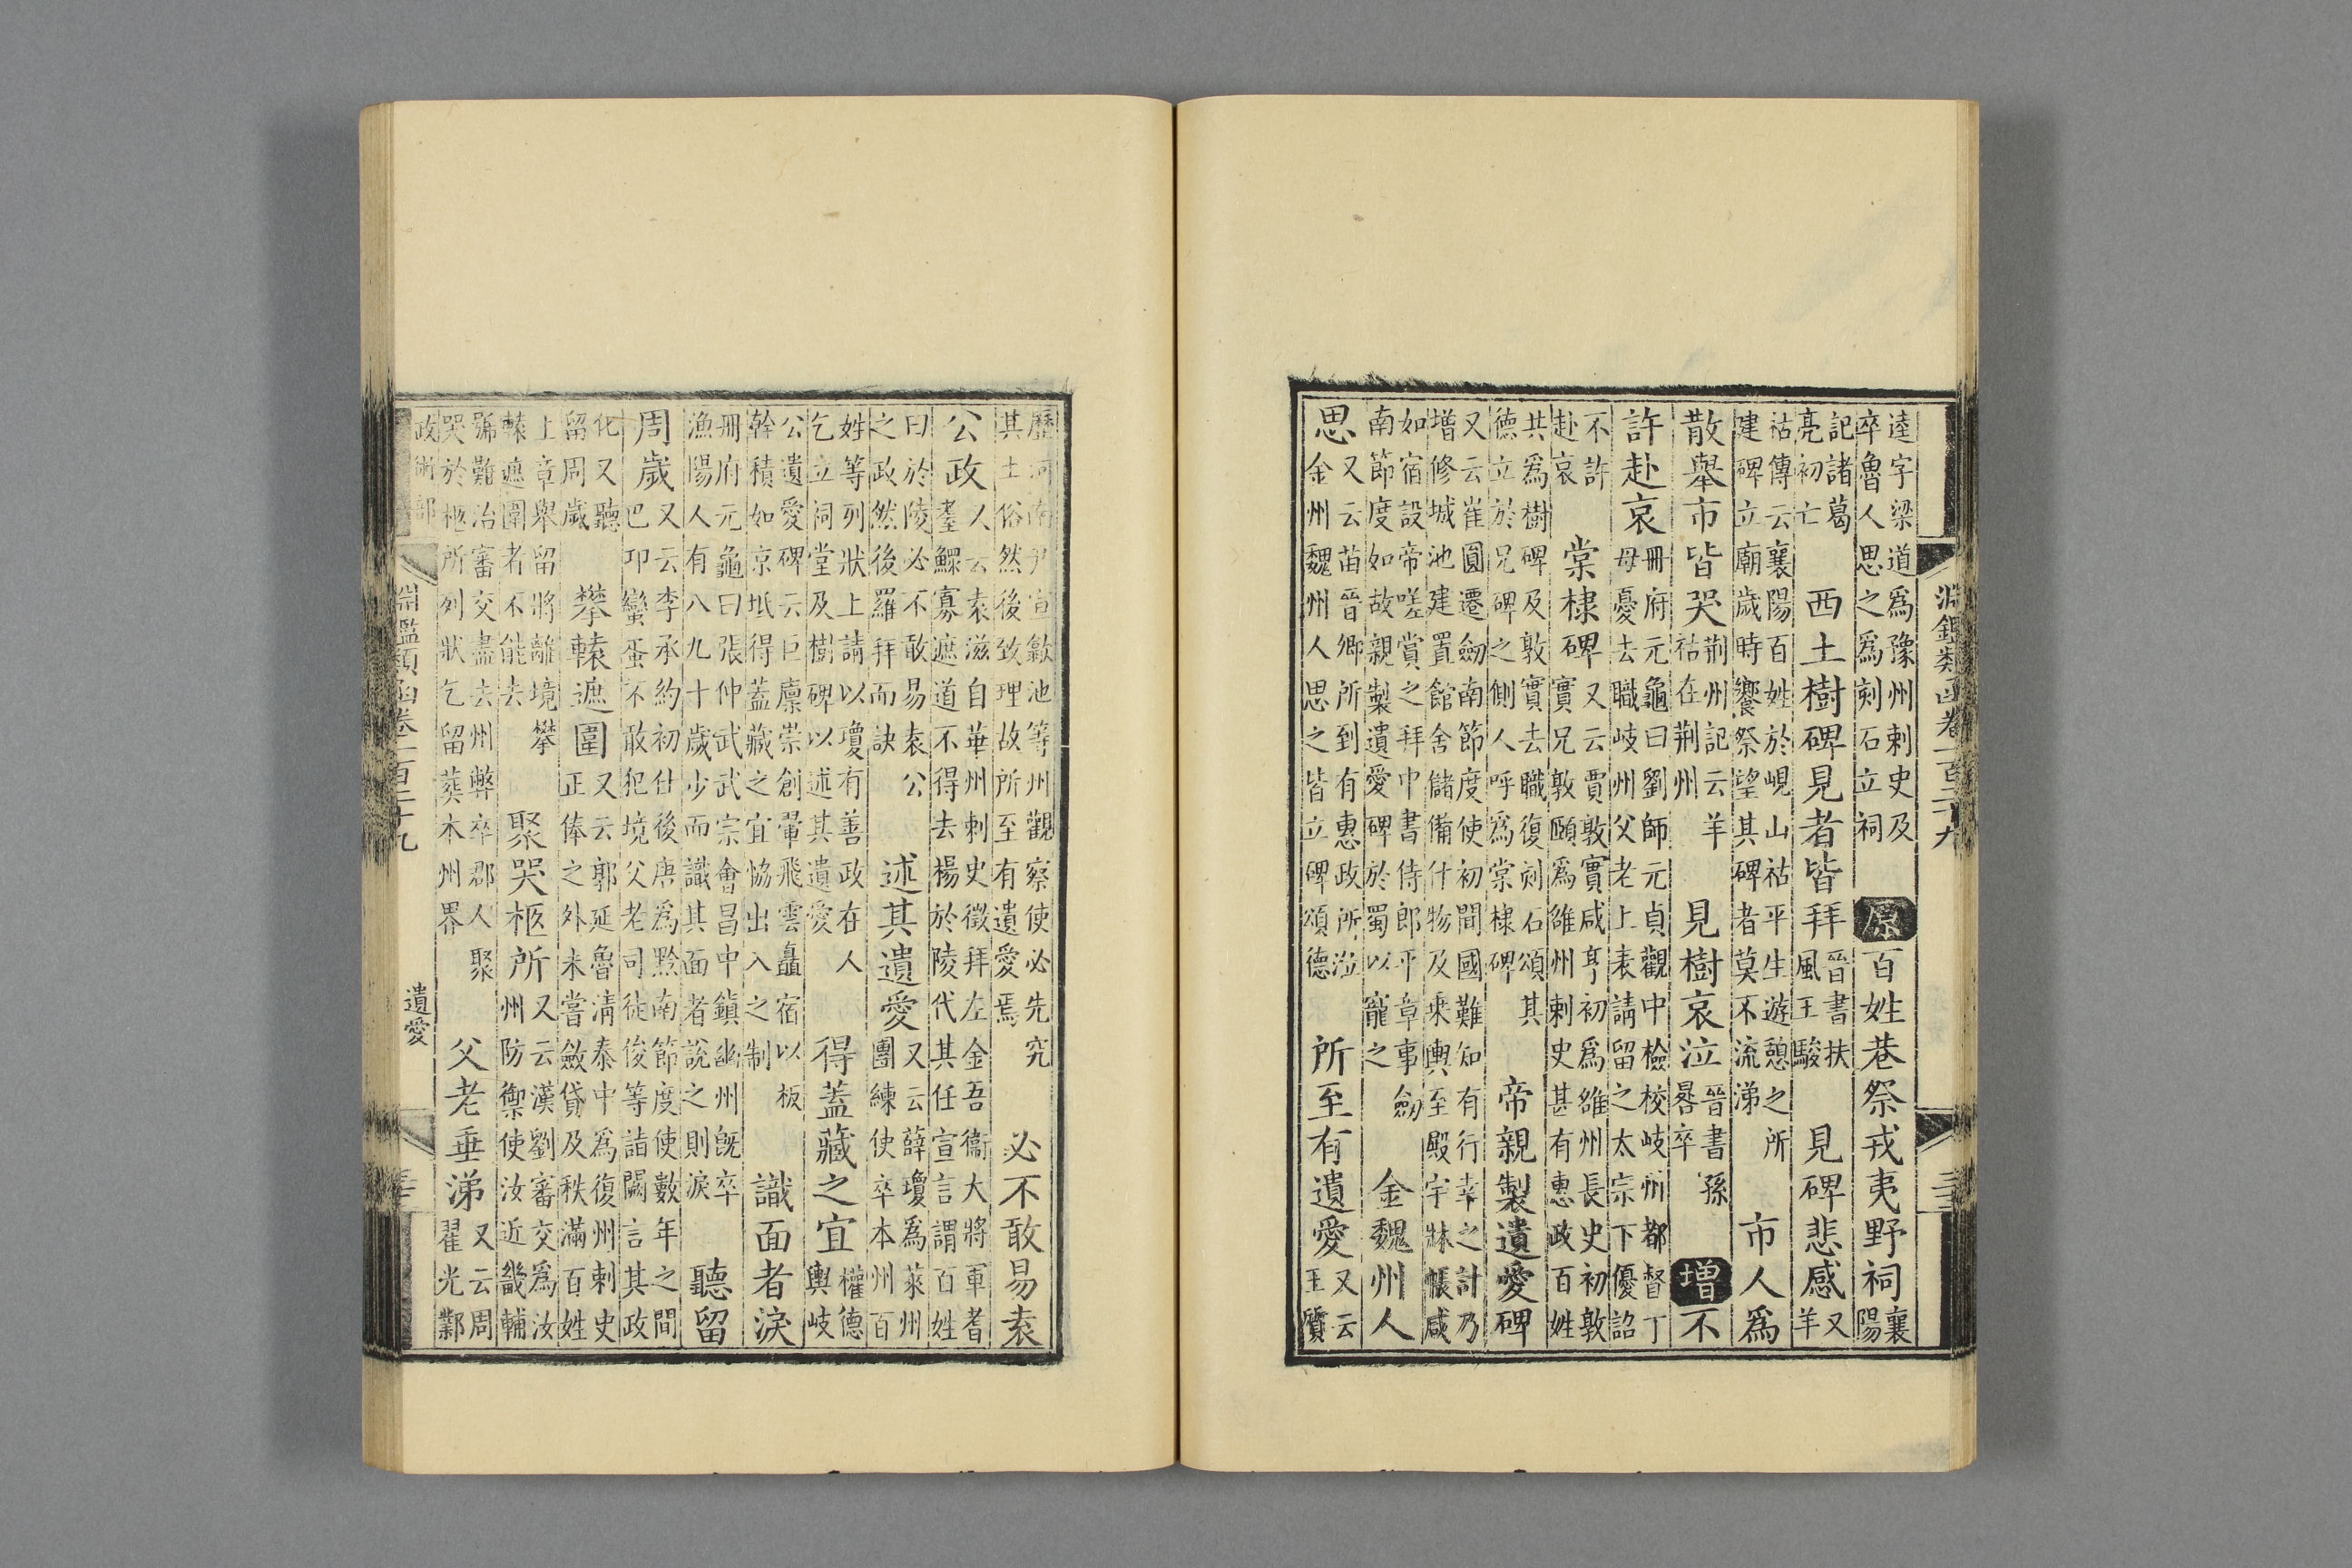 淵鑑類函卷一百二十九
逵字梁道爲豫州刺史及
卒魯人思之爲刻石立祠
原百姓巷祭戎夷野祠
襄
陽
記諸葛
亮初亡
西土樹碑見者皆拜
晉書扶
風王駿
見碑悲感
又
羊
祜傳云襄陽百姓於峴山祜平生遊憩之所
建碑立廟歲時饗祭望其碑者莫不流涕
市人爲
散舉市皆哭
荆州記云羊
祜在荆州
見樹哀泣
晉書孫
晷卒
增不
許赴哀
冊府元龜曰劉師元貞觀中檢校岐州都督丁
母憂去職岐州父老上表請留之太宗下優詔
不許
赴哀
棠棣碑
又云賈敦實咸亨初爲雒州長史初敦
實兄敦頤爲雒州刺史甚有惠政百姓
共爲樹碑及敦實去職復刻石頌其
德立於兄碑之側人呼爲棠棣碑
帝親製遺愛碑
又云崔圓遷劒南節度使初聞國難知有行幸之計乃
增修城池建置館舍儲備什物及乘輿至殿宇牀帳咸
如宿設帝嗟賞之拜中書侍郎平章事劒
南節度如故親製遺愛碑於蜀以寵之
金魏州人
思
又云苗晉卿所到有惠政所涖
金州魏州人思之皆立碑頌德
所至有遺愛
又云
王質
歷河南尹宣歙池等州觀察使必先究
其土俗然後致理故所至有遺愛焉
必不敢易袁
公政
又云袁滋自華州刺史徵拜左金吾衞大將軍耆
人耋鰥寡遮道不得去楊於陵代其任宣言謂百姓
曰於陵必不敢易袁公
之政然後羅拜而訣
述其遺愛
又云薛瓊爲萊州
團練使卒本州百
姓等列狀上請以瓊有善政在人
乞立祠堂及樹碑以述其遺愛
得蓋藏之宜
權德
輿岐
公遺愛碑云巨廩崇創翬飛雲矗宿以板
幹積如京坻得蓋藏之宜協出入之制
識面者淚
冊府元龜曰張仲武武宗會昌中鎭幽州旣卒
漁陽人有八九十歲少而識其面者說之則淚
聽留
周歲
又云李承約初仕後唐爲黔南節度使數年之間
巴卭蠻蜑不敢犯境父老司徒俊等詣闕言其政
化又聽
留周歲
攀轅遮圍
又云郭延魯淸泰中爲復州刺史
正俸之外未嘗斂貸及秩滿百姓
上章舉留將離境攀
轅遮圍者不能去
聚哭柩所
又云漢劉審交爲汝
州防禦使汝近畿輔
號難治審交盡去州弊卒郡人聚
哭於柩所列狀乞留葬本州界
父老垂涕
又云周
翟光鄴
政術部
淵鑑類函卷一百二十九
遺愛